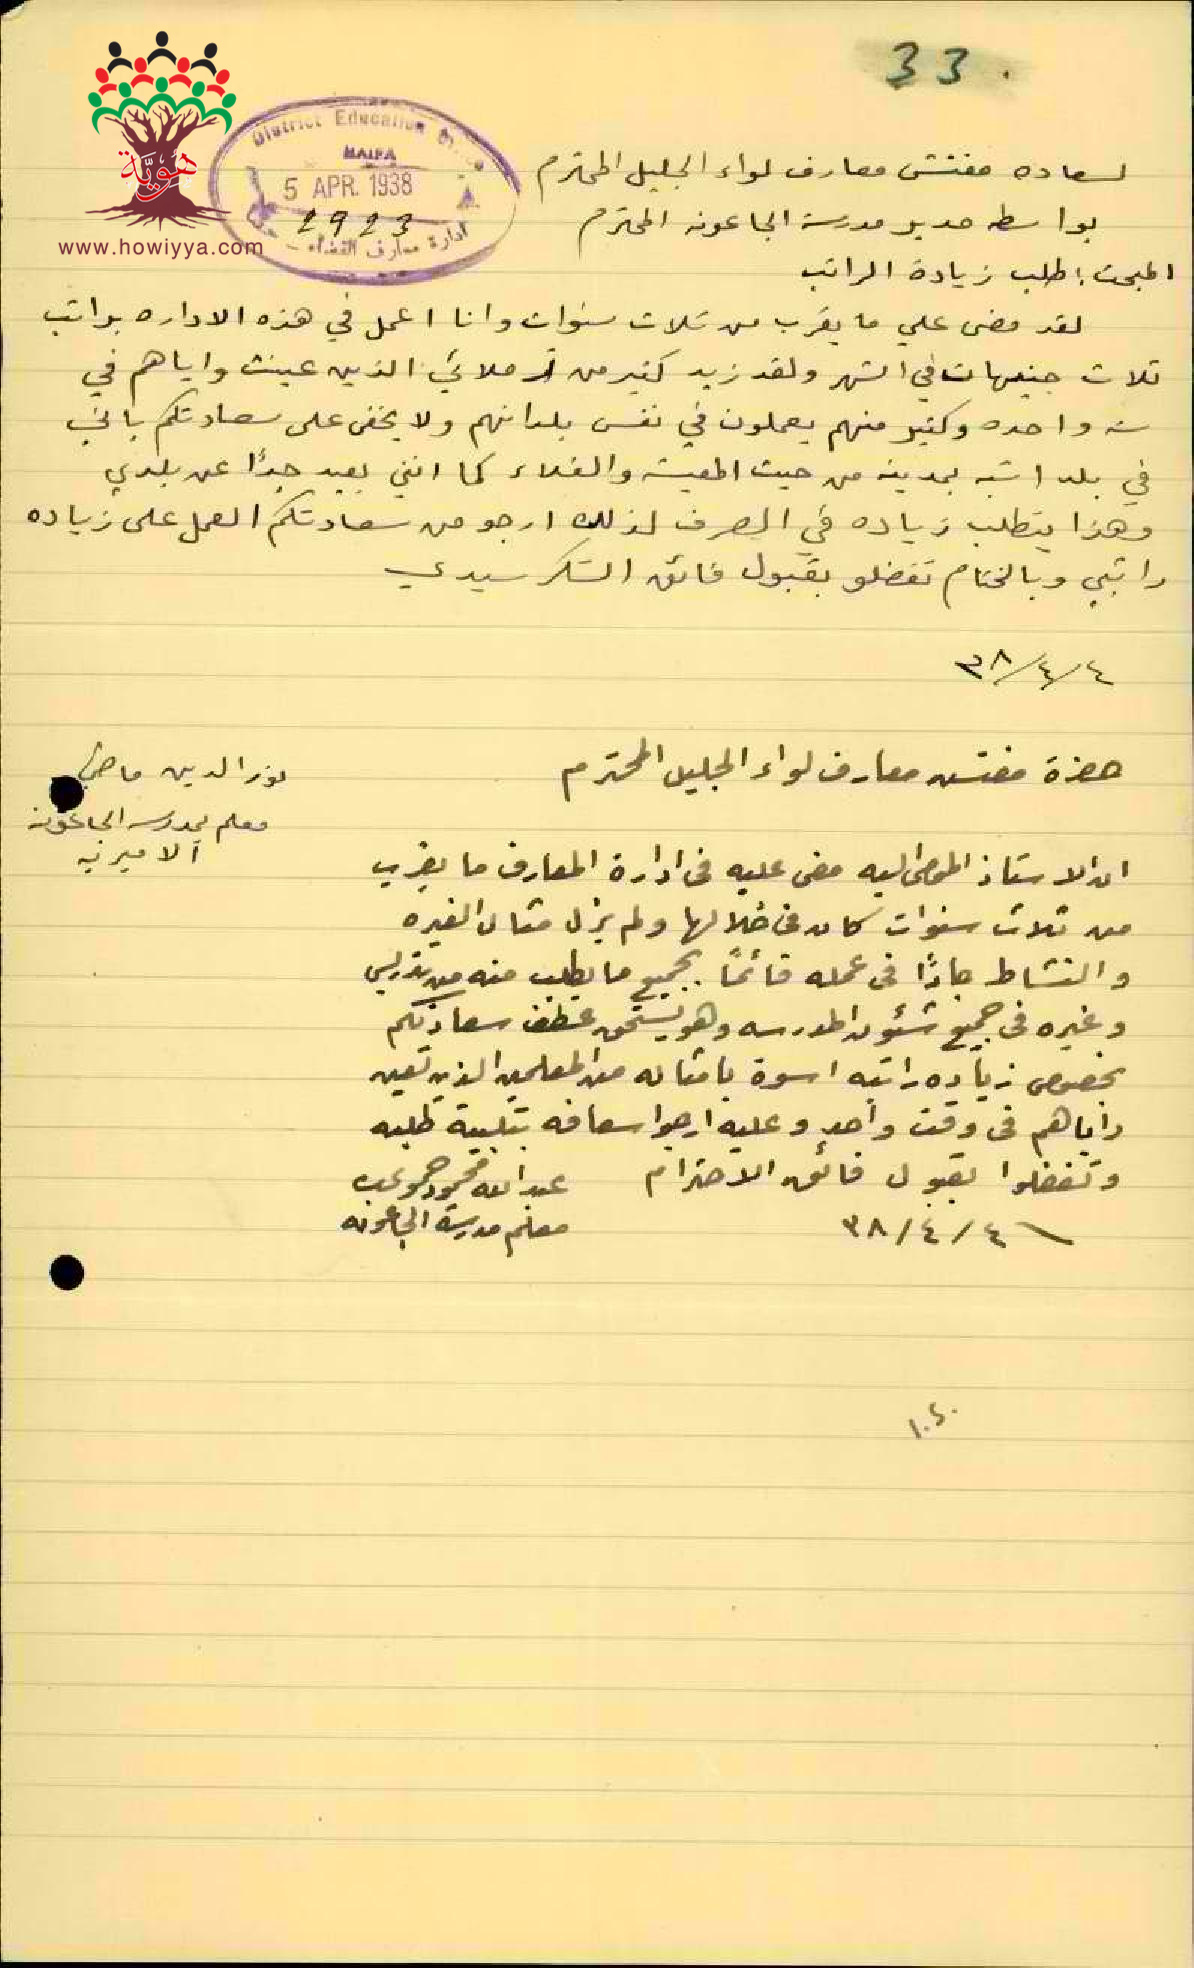 33.
هويّة
www.howiyya.com
District Education Office
HAIFA
5 APR. 1938
2923
ادارة معارف القضاء
لسعاده مفتش معارف لواء الجليل المحترم
بواسطه مدير مدرسة الجاعونه المحترم
المبحث: طلب زيادة الراتب
لقد مضى علي ما يقرب من ثلاث سنوات وانا اعمل في هذه الاداره براتب
ثلاث جنيهات في الشهر ولقد زيد كثير من زملائي الذين عينت واياهم في
سنه واحده وكثير منهم يعملون في نفس بلدانهم ولا يخفى على سعادتكم باني
في بلد اشبه بمدينه من حيث المعيشه والغلاء كما انني بعيد جدًا عن بلدي
وهذا يتطلب زياده في المصرف لذلك ارجو من سعادتكم العمل على زياده
راتبي وبالختام تفضلو بقبول فائق الشكر سيدي
٣٨/٤/٤
نور الدين ماضي
معلم بمدرسة الجاعونه
الاميريه
حضرة مفتش معارف لواء الجليل المحترم
ان الاستاذ الموصى اليه مضى عليه في ادارة المعارف ما يقرب
من ثلاث سنوات كان في خلالها ولم يزل مثال الغيره
والنشاط جادًا في عمله قائمًا بجميع ما يطلب منه من تدريس
وغيره في جميع شئون المدرسه وهو يستحق عطف سعادتكم
بخصوص زياده راتبه اسوة بامثاله من المعلمين الذين تعين
واياهم في وقت واحد وعليه ارجوا اسعافه بتلبية طلبه
وتفضلوا بقبول فائق الاحترام
عبد الله محمود
معلم مدرسة الجاعونه
٣٨/٤/٤